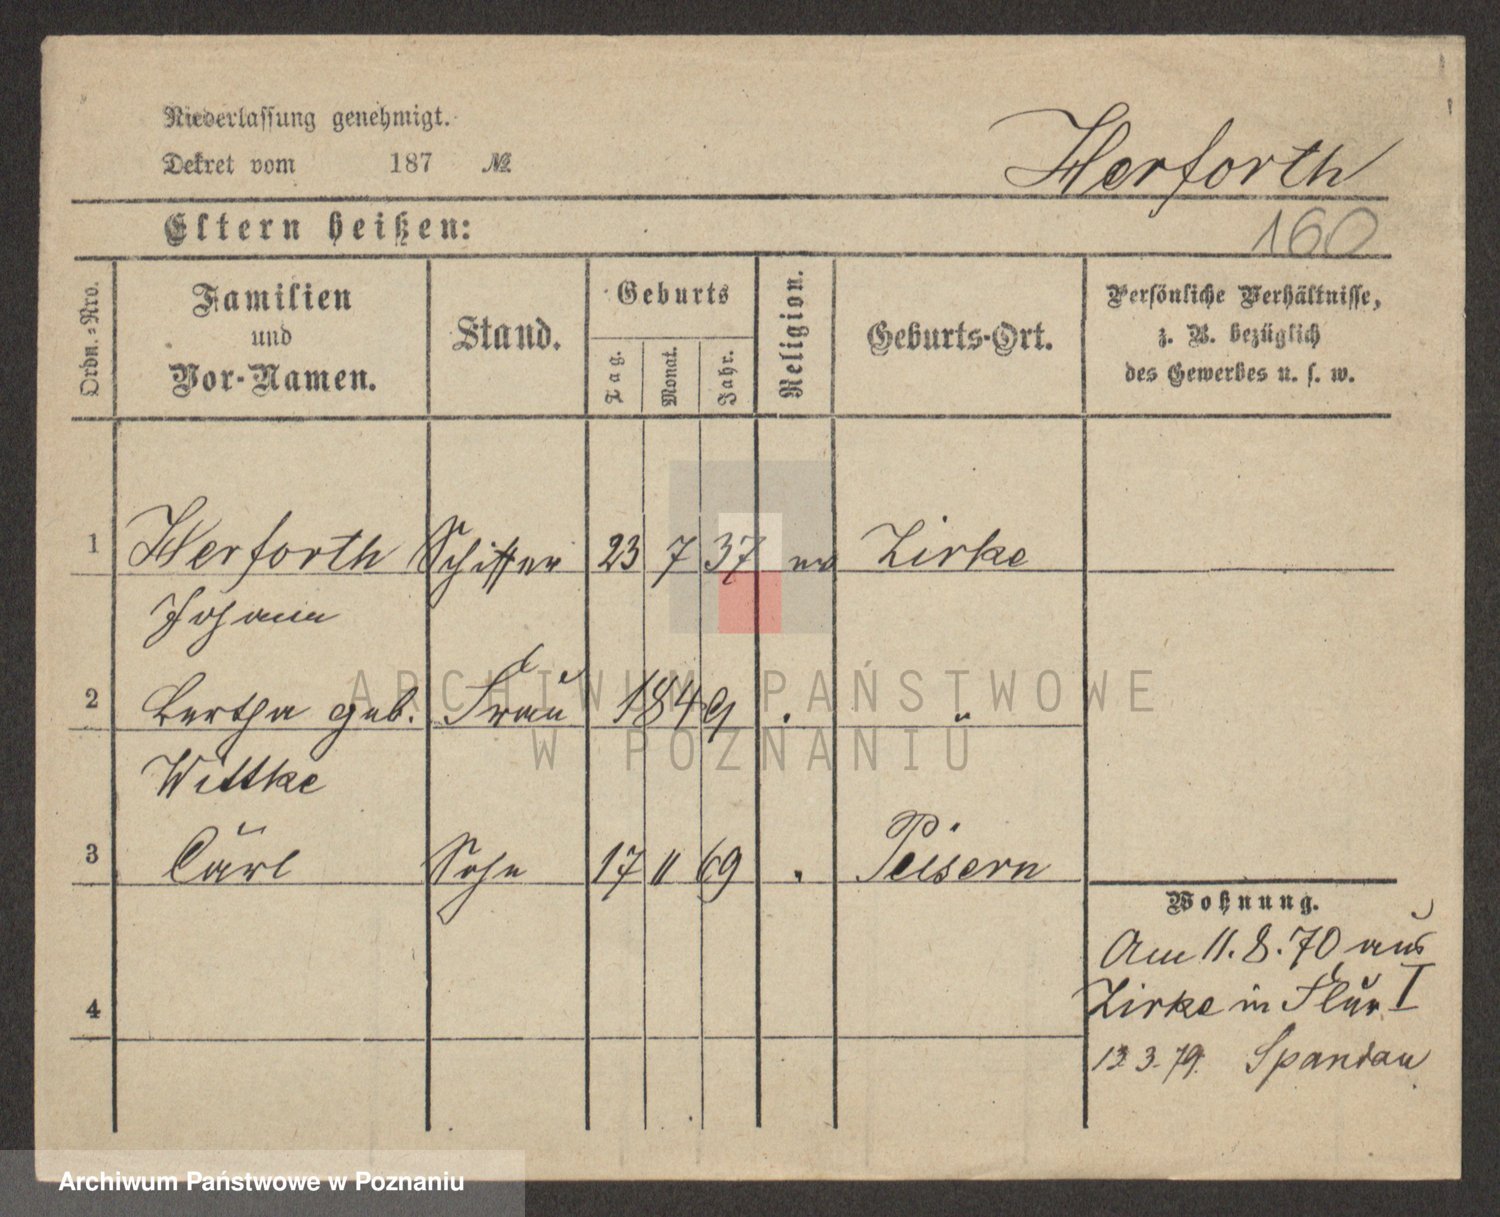 Niederlassung genehmigt.
Dekret vom 187 №
Herforth
Eltern heißen:
160
Ordn.=Nro.
Familien
und
Vor-Namen.
Stand.
Geburts
Tag.
Monat.
Jahr.
Religion.
Geburts-Ort.
Persönliche Verhältnisse,
z. B. bezüglich
des Gewerbes u. s. w.
1 Herforth Schiffer 23 7 37 ev Zirke
Johann
2 Bertha geb. Frau 1849 . "
Wittke
3 Carl Sohn 17 11 69 . Peisern
Wohnung.
Am 11. 8. 70 aus
Zirke in Flur I
4
3. 79. Spandau
ARCHIWUM PAŃSTWOWE
W POZNANIU
Archiwum Państwowe w Poznaniu